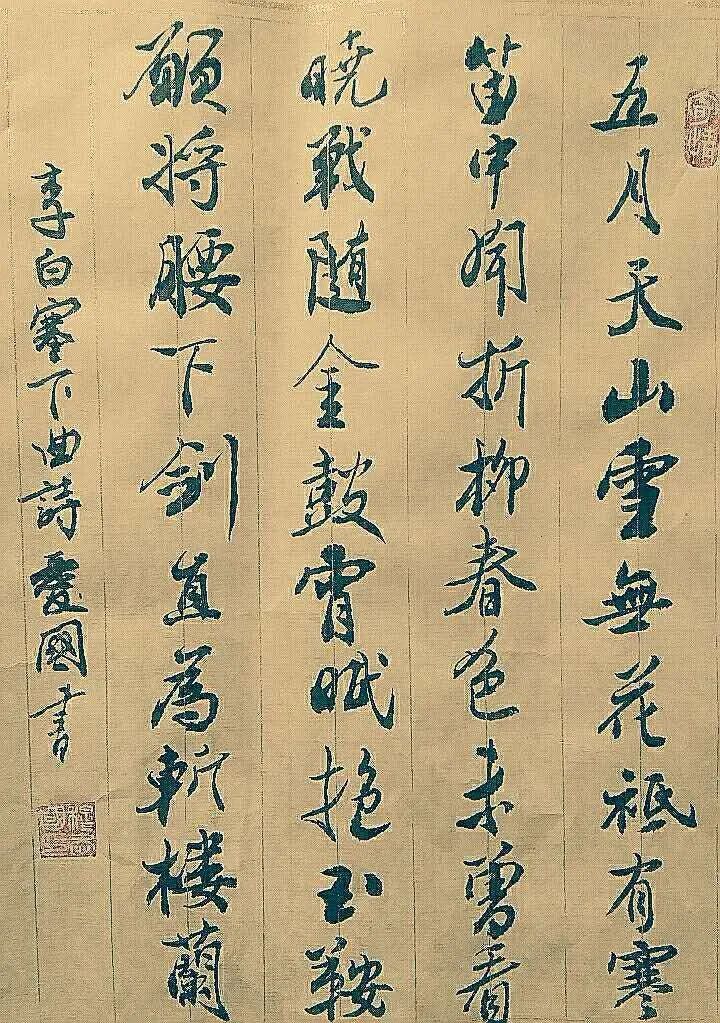 五月天山雪無花祗有寒
笛中聞折柳春色未曾看
曉戰隨金鼓宵眠抱玉鞍
願將腰下劍直為斬樓蘭
李白塞下曲詩愛國書